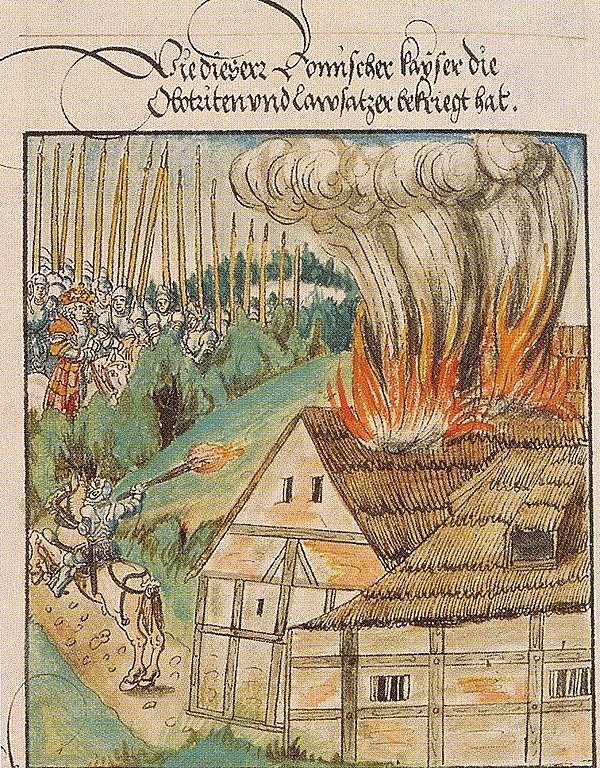 Wie dieserr Romischer kayser die
Obotriten vnd Lawsatzer bekriegt hat.